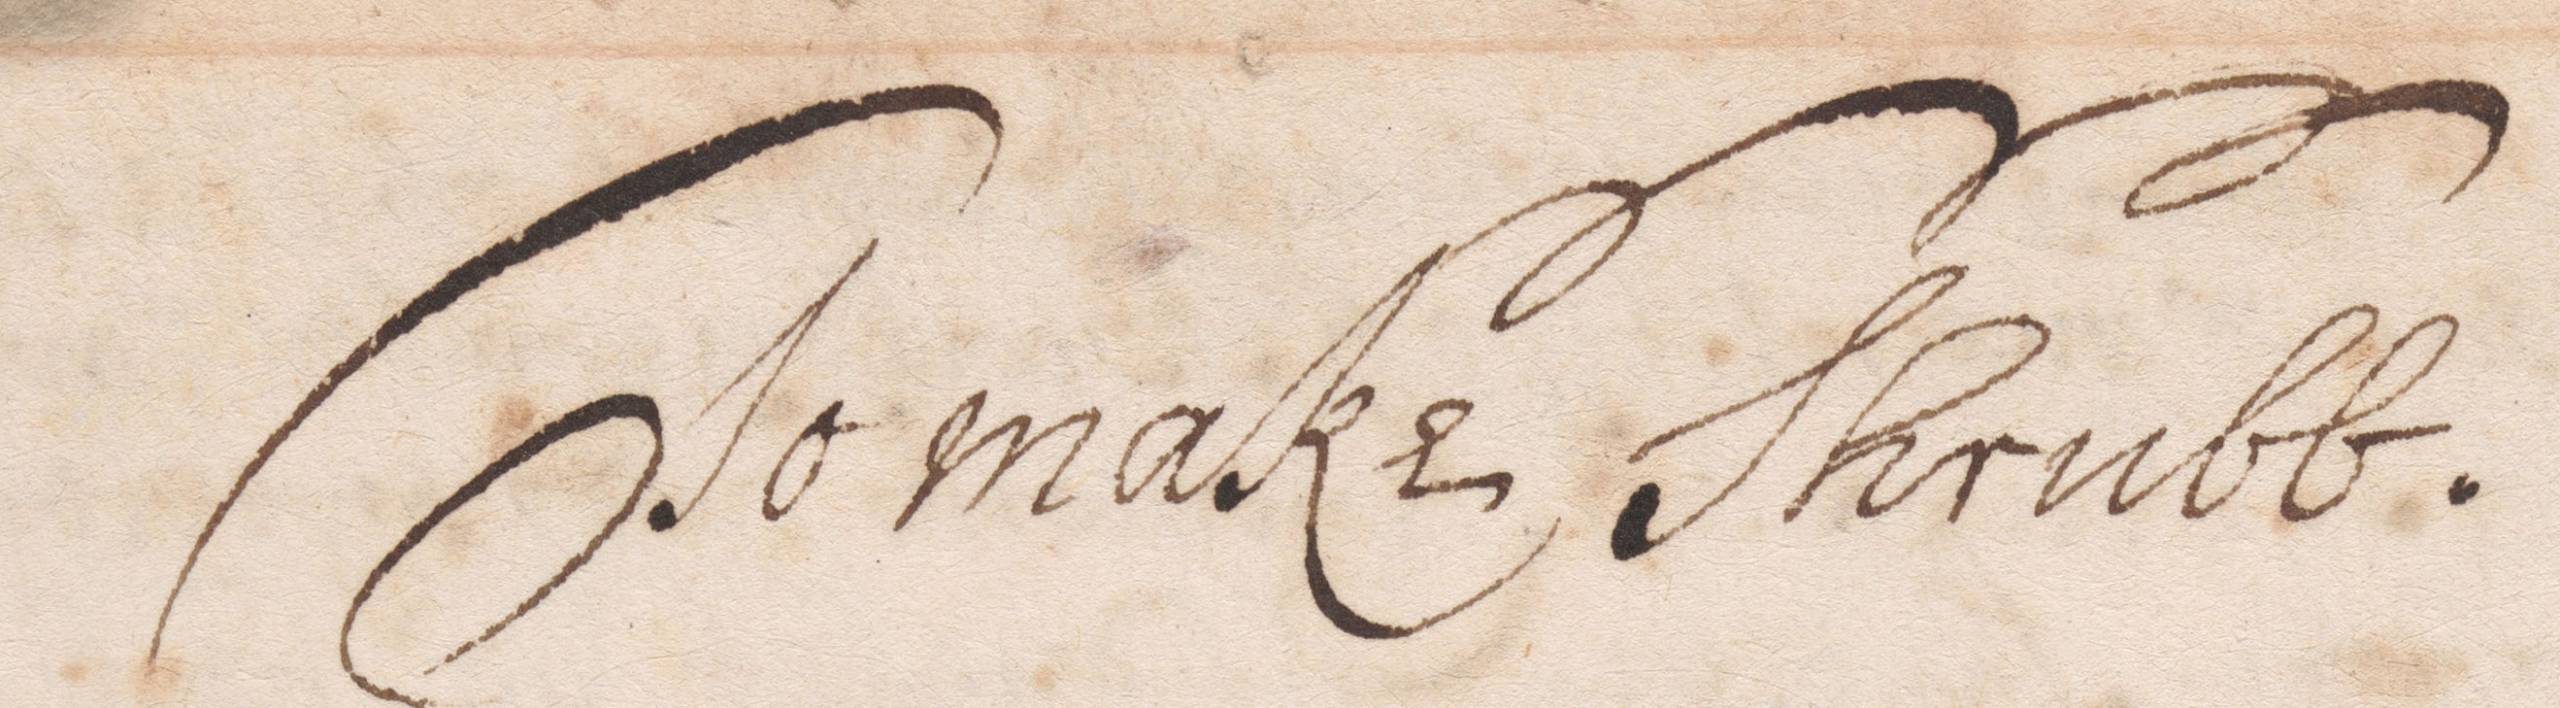 To make Shrubb.